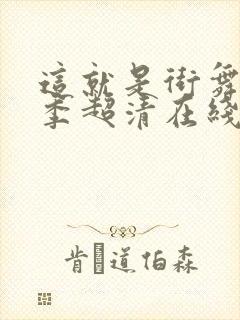 這就是街舞
季超清在綫
肯·道伯森